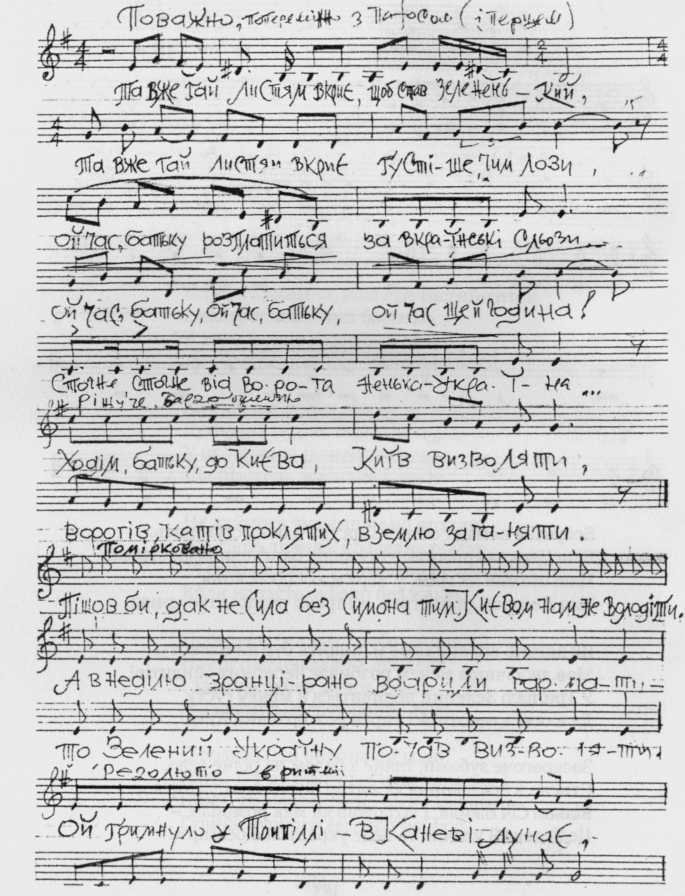 Поважно, поперемінно з пафосом (і перцем)
Та вже гай листям вкриє, щоб став зеленень-кий,
Та вже гай листям вкриє густі-ше, чим лози,
ой час, батьку розплатиться за вкра-їнські сльози...
ой час, батьку, ой час, батьку, ой час ще й година!
Стогне стогне від во-ро-га ненька-Укра-ї-на...
Ріщуче,
Ходім, батьку, до Києва, Київ визволяти,
ворогів, катів проклятих, в землю заганя-ти.
Помірковано
Пішов би, дак не сила без Симона тим Києвом нам не володіти.
А в неділю зранці-рано вдарили гар-ма-ти-
то Зелений Україну по-чав виз-во-ля-ти.
Резолюто - в ритмі
Ой гримнуло у Трипіллі - в Каневі лунає,